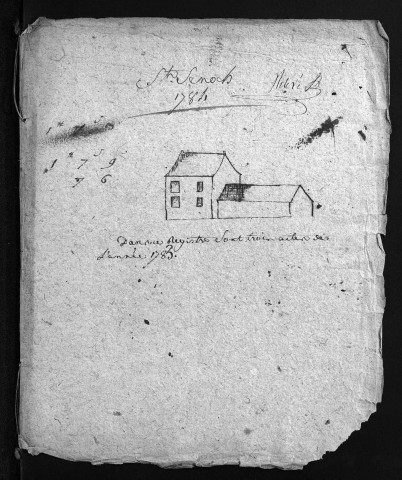 St Senoch
1784
1 7
1 7 9
6
Dans ce Registre sont trois actes de
L'année 1783.